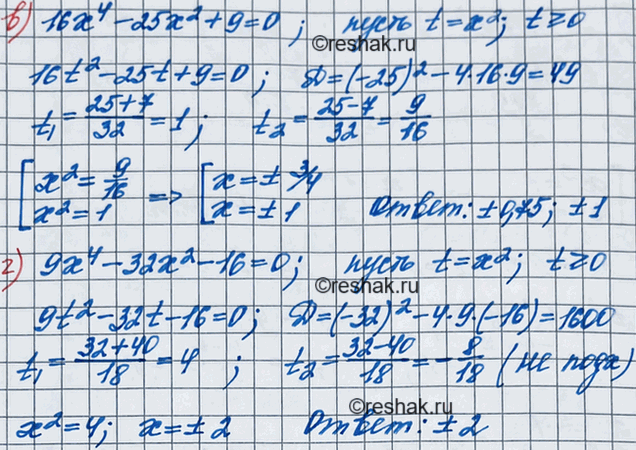 в) 16x⁴ − 25x² + 9 = 0 ; пусть t = x² ; t ≥ 0
©reshak.ru
16t² − 25t + 9 = 0 ; D = (−25)² − 4·16·9 = 49
t₁ = (25+7)/32 = 1 ; t₂ = (25−7)/32 = 9/16
[ x² = 9/16 => [ x = ± 3/4
x² = 1 x = ± 1 Ответ: ± 0,75 ; ± 1
г) 9x⁴ − 32x² − 16 = 0 ; пусть t = x² ; t ≥ 0
©reshak.ru
9t² − 32t − 16 = 0 ; D = (−32)² − 4·9·(−16) = 1600
t₁ = (32+40)/18 = 4 ; t₂ = (32−40)/18 = −8/18 (не подх)
©reshak.ru
x² = 4 ; x = ± 2 Ответ: ± 2